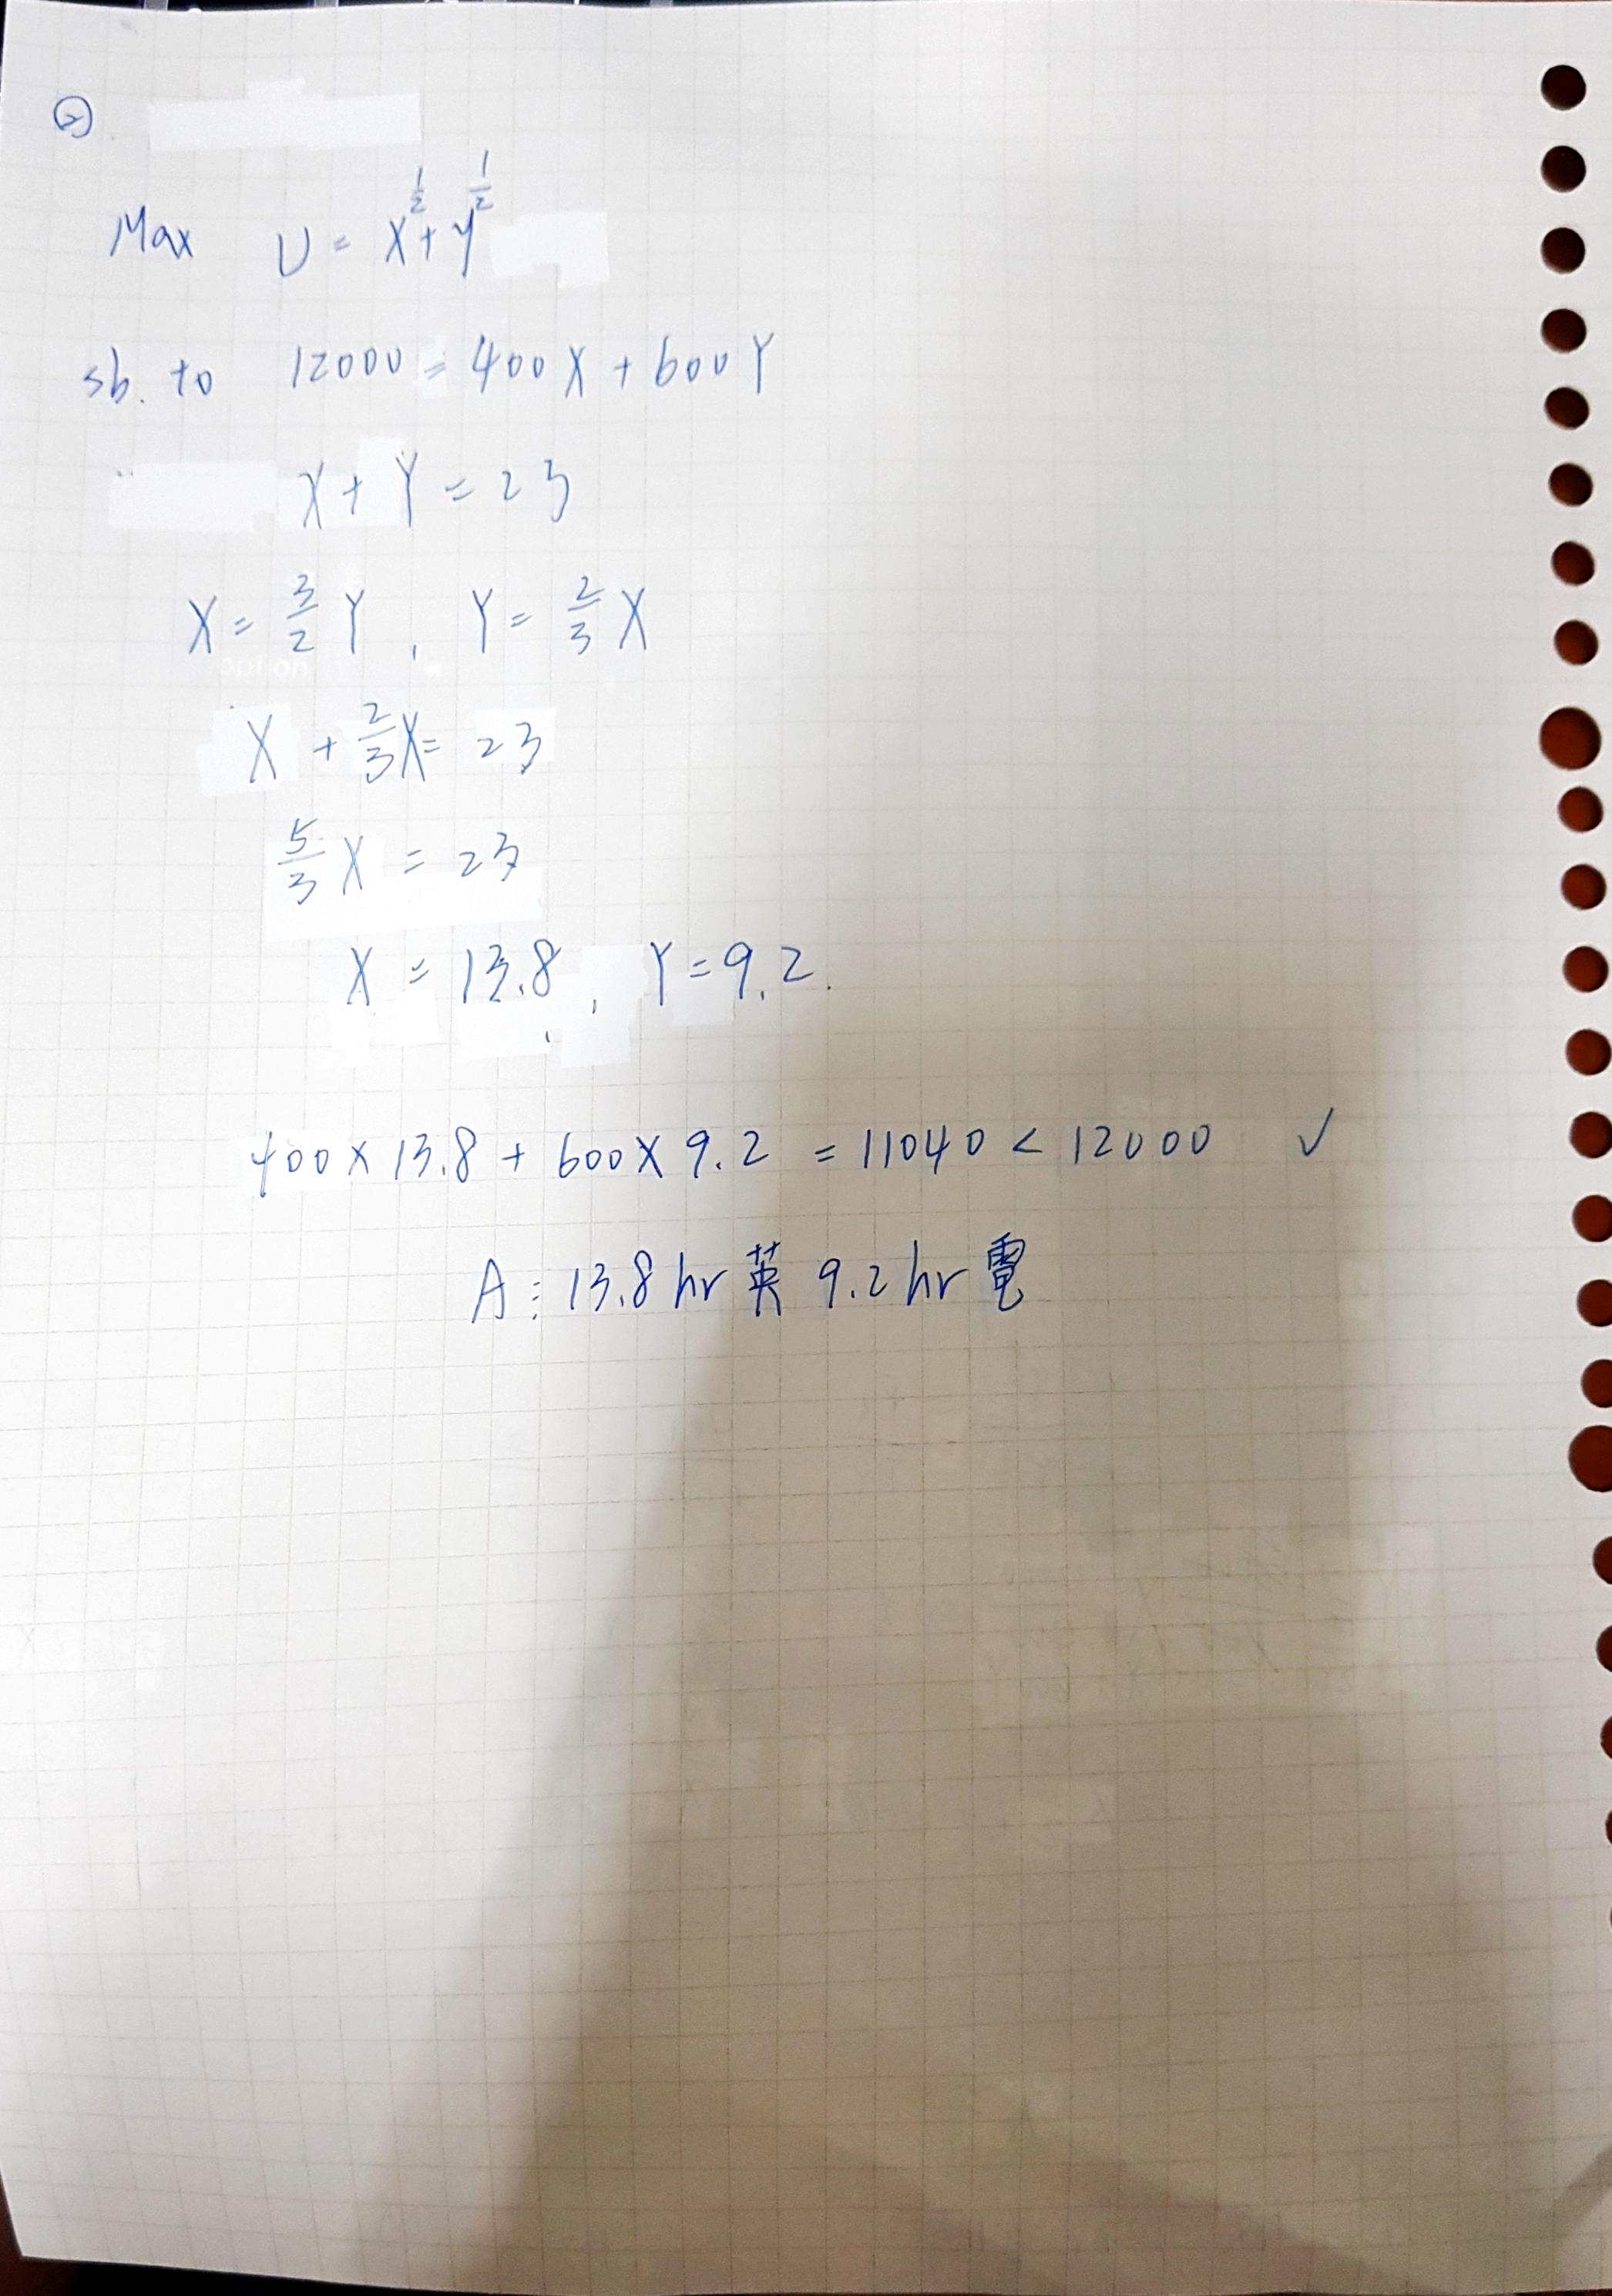 ②
Max U = X^{1/2} + Y^{1/2}
sb. to 12000 = 400X + 600Y
X + Y = 23
X = 3/2 Y , Y = 2/3 X
X + 2/3 X = 23
5/3 X = 23
X = 13.8 , Y = 9.2.
400 x 13.8 + 600 x 9.2 = 11040 < 12000 ✓
A : 13.8 hr 英 9.2 hr 電